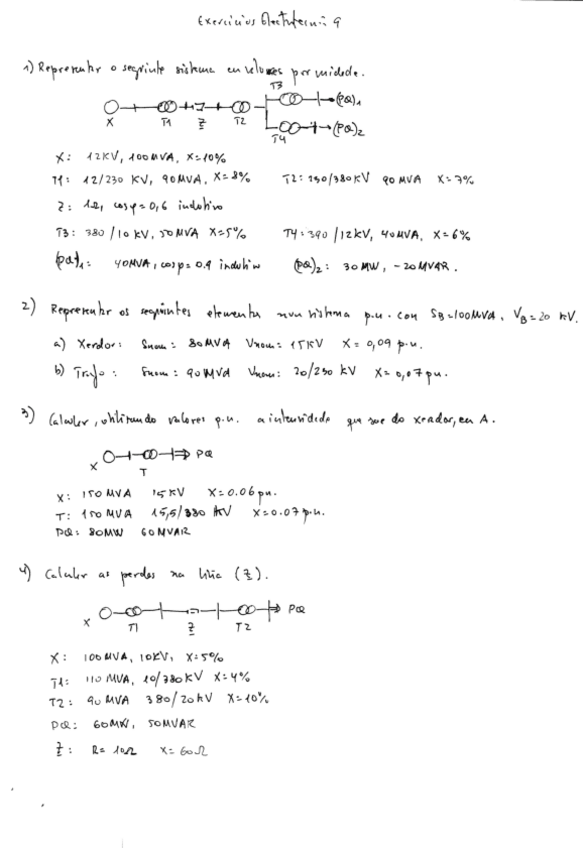 Exercicios Electrotecnia 9
1) Representar o seguinte sistema en valores por unidade.
T3
X T1 Z T2 (PQ)1
T4 (PQ)2
X: 12KV, 100MVA, X=10%
T1: 12/230 KV, 90MVA, X=8% T2: 230/380KV 90 MVA X=7%
Z: 1Ω, cosφ=0,6 indutivo
T3: 380/10 KV, 50MVA X=5% T4: 390/12KV, 40MVA, X=6%
(PQ)1: 40MVA, cosφ=0.9 indutivo (PQ)2: 30MW, -20MVAR.
2) Representar os seguintes elementos nun sistema p.u. con SB=100MVA, VB=20 KV.
a) Xerador: Snom: 80MVA Vnom: 15KV X=0,09 p.u.
b) Trafo: Snom: 90MVA Vnom: 20/230 kV X=0,07pu.
3) Calcular, utilizando valores p.u. a intensidade que sae do xerador, en A.
X T PQ
X: 150MVA 15KV X=0.06pu.
T: 150 MVA 15,5/380 KV X=0.07 p.u.
PQ: 80MW 60MVAR
4) Calcular as perdas na liña (Z).
X T1 Z T2 PQ
X: 100MVA, 10KV, X=5%
T1: 110 MVA, 10/380KV X=4%
T2: 90 MVA 380/20KV X=10%
PQ: 60MW, 50MVAR
Z: R=10Ω X=60Ω